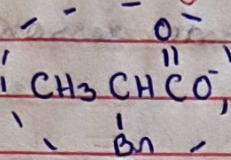 O
||
CH3 CHCO⁻,
|
Br